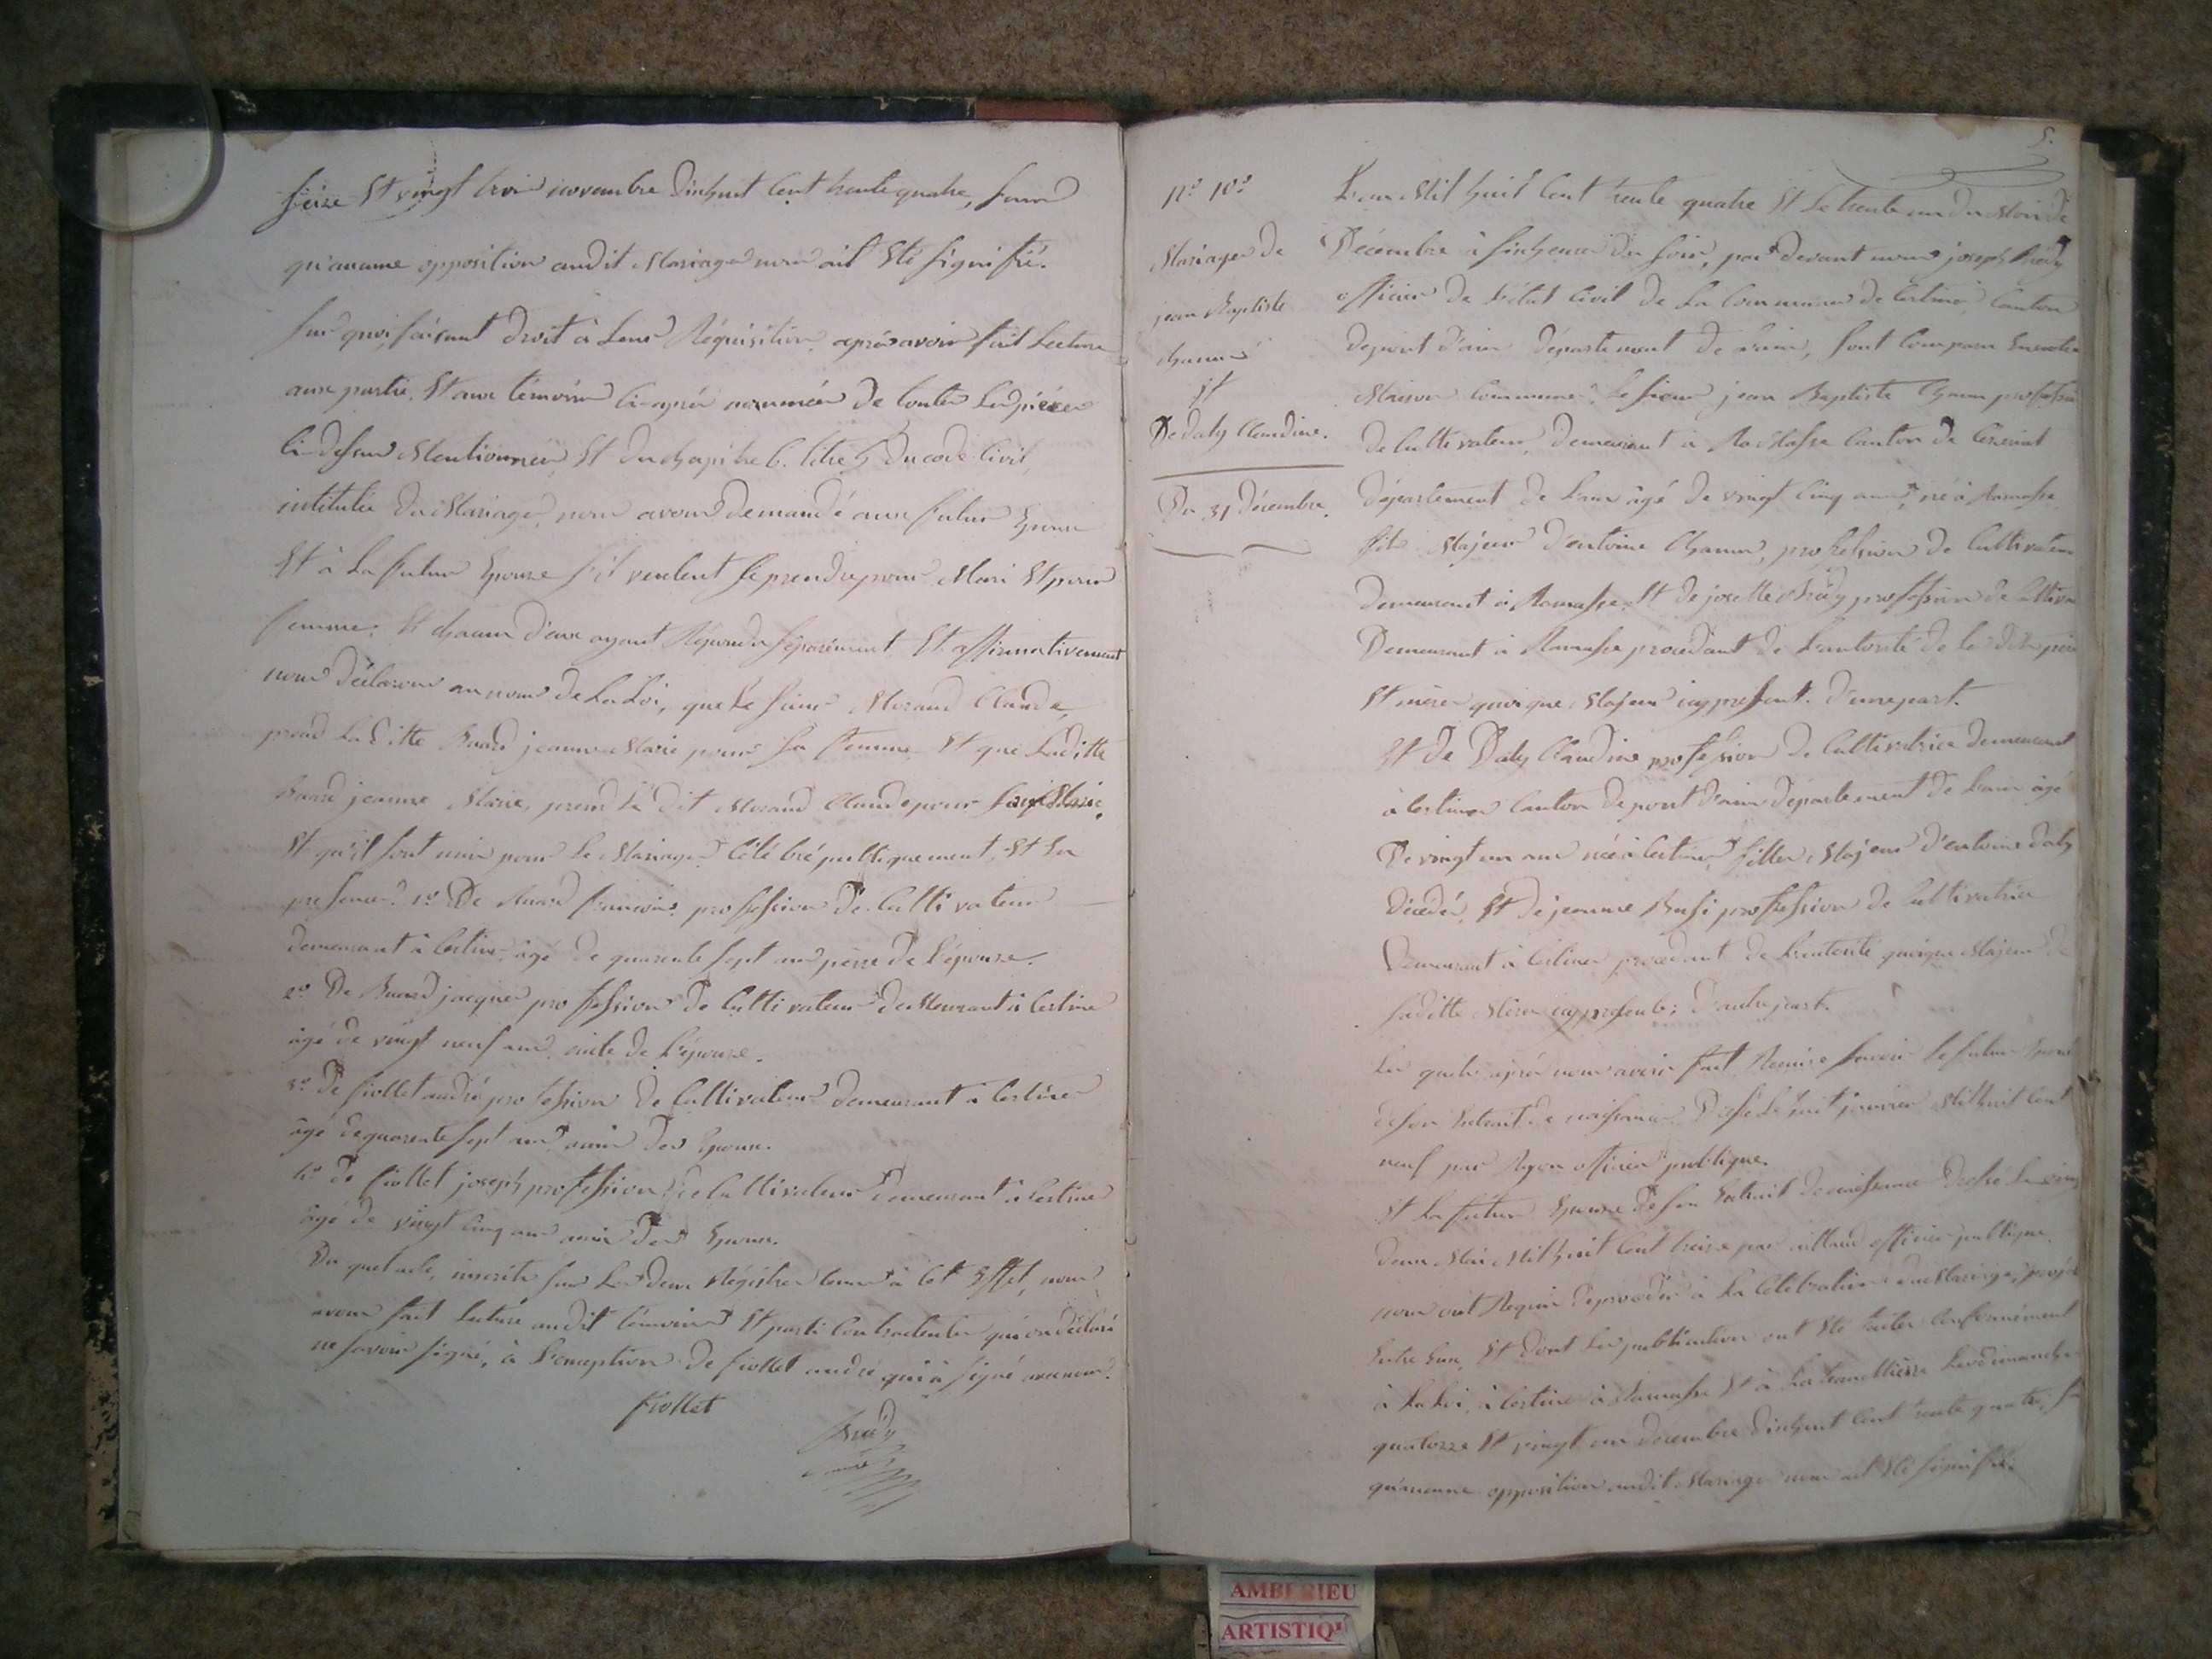 seize et vingt trois novembre dixhuit cent trente quatre, sans
qu'aucune opposition audit Mariage nous ait été signifié.
sur quoi faisant droit à leur Réquisition, après avoir fait lecture
aux partie, et aux témoins ci-après nommées de toutes les pièces
ci-dessus Mentionnées, et du chapitre 6. titre 5 du code civil,
intitulée du Mariage, nous avons demandé aux futur Epoux
et à la futur Epouse s'il veulent se prendre pour Mari et pour
femme; et chacun d'eux ayant Répondu séparément et affirmativement
nous déclarons au nom de la Loi, que le sieur Morand Claude,
prend la ditte Buard jeanne Marie pour sa femme et que laditte
Buard jeanne Marie, prend le dit Morand Claude pour
et qu'il sont unis pour le Mariage célébré publiquement, et en
presence 1º De Buard francois profession de Cultivateur
demeurant à Certine âgé de quarente sept ans père de l'épouse.
2º De Buard jacques profession de Cultivateur demeurant à Certine
âgé de vingt neuf ans, oncle de l'épouse.
3º De fiollet andré profession de Cultivateur demeurant à Certine
âgé de quarente sept ans amis des Epoux.
4º de fiollet joseph profession de Cultivateur demeurant à Certine
âgé de vingt cinq ans amis des Epoux.
Du quel acte, inscrite sur les deux Régistres tenus à cet Effet, nous
avons fait lecture audit témoins et parti Contractentes qui on déclaré
ne savoir signé, à l'exception de fiollet andré qui à signé avec nous.
fiollet
5.
Nº 10º
Mariage de
jean Baptiste
Chanux
et
De daly Claudine.
Du 31 décembre.
L'an Mil huit Cent trente quatre et le trente un du Mois de
Décembre à six heures du soir, par devant nous joseph
officier de l'état Civil de la Commune de Certine, Canton
de pont d'ain département de l'ain, sont Comparu En notre
Maison Commune, le sieur jean Baptiste Chanux profession
de Cultivateur, demeurant à Ramasse Canton de Ceyzeriat
département de l'ain âgé de vingt cinq ans, né à Ramasse
fils Majeur d'entoine Chanux, profession de Cultivateur
demeurant à Ramasse et de josette profession de
Demeurant à Ramasse procédant de l'autorité de ses dits père
et mère quoique Majeur icy présent. d'une part.
Et de Daly Claudine profession de Cultivatrice demeurant
à Certines Canton de pont d'ain département de l'ain âgé
De vingt un ans née à Certines, filles Majeur d'entoine daly
décédé, et de jeanne Bussi profession de Cultivatrice
Demeurant à Certines procédant de l'autorité quoique Majeur de
saditte Mère icy présente; d'autre part.
Les quels après nous avoir fait Remise savoir le futur Epoux
de son Extrait de naissance Dressé le huit janvier Mil huit Cent
neuf par officier publique.
Et la futur Epouse de son Extrait de naissance dressé le vingt
deux Mai Mil huit Cent treize par officier publique.
nous ont Requis de procéder à la Célébration du Mariage, projeté
Entre Eux, et dont les publication ont été faites Conformément
à la Loi, à Certine à Ramasse et à la tranclière les dimanche
quatorze et vingt un décembre dixhuit Cent trente quatre,
qu'aucune opposition audit Mariage nous ait été signifiée.
AMBERIEU
ARTISTIQ